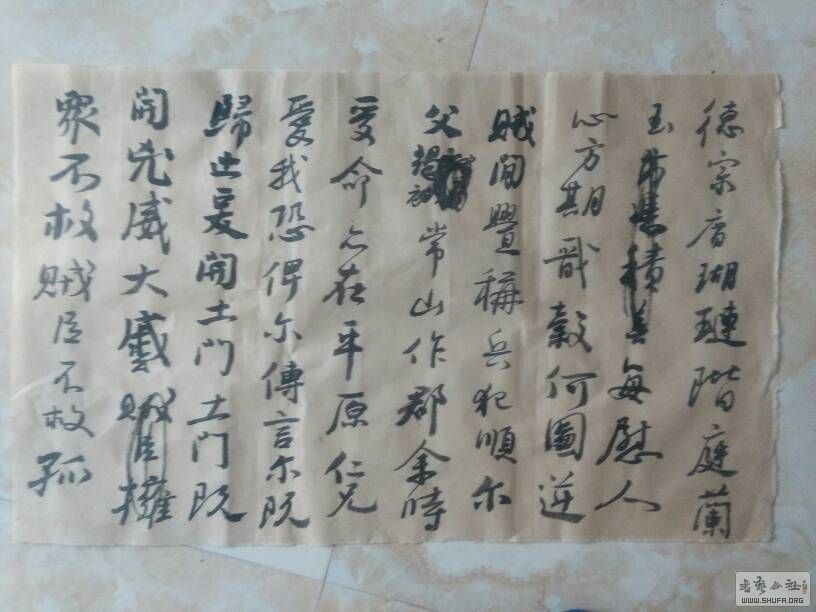 德宗庿瑚璉階庭蘭
玉方憑積善每慰人
心方期戩穀何圖逆
賊間釁稱兵犯順尔
父竭誠常山作郡余時
受命亦在平原仁兄
愛我恐俾尔傳言尔既
歸止爰開土門土門既
開兇威大蹙賊臣擁
眾不救賊臣不救孤
書藝公社
WWW.SHUFA.ORG